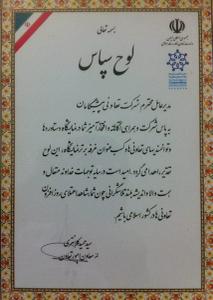 بسمه تعالی
لوح سپاس
مدیرعامل محترم شرکت تعاونی
به پاس شرکت و همراهی آگاهانه و افتخارآمیز شما در نمایشگاه دستاوردها
و توانمندیهای تعاونی ها و کسب عنوان غرفه برتر نمایشگاه، این لوح
تقدیر اهدا می گردد. امید است در سایه توجهات خداوند متعال و
همت والا و اندیشه بلند تلاشگرانی چون شما، شاهد اعتلای روزافزون
تعاونی ها در کشور اسلامی باشیم.
سید حمید کلانتری
معاون